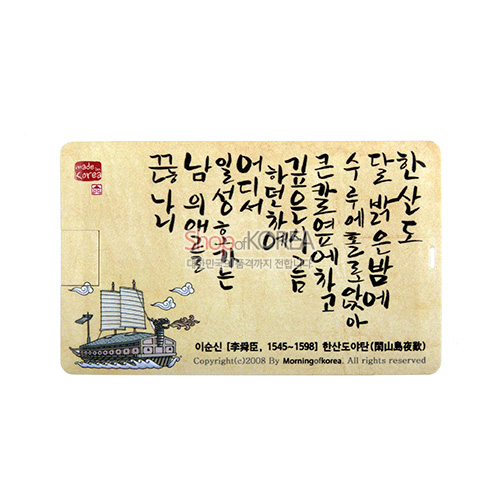 한산도
달 밝은밤에
수루에홀로앉아
큰칼옆에차고
깊은시름
하던차에
어디서
일성호가는
남의애를
끊나니
made in
Korea
ShopofKOREA
대한민국의 품격까지 전합니다
이순신 [李舜臣, 1545~1598] 한산도야탄(閑山島夜歎)
Copyright(c)2008 By Morningofkorea. All rights reserved